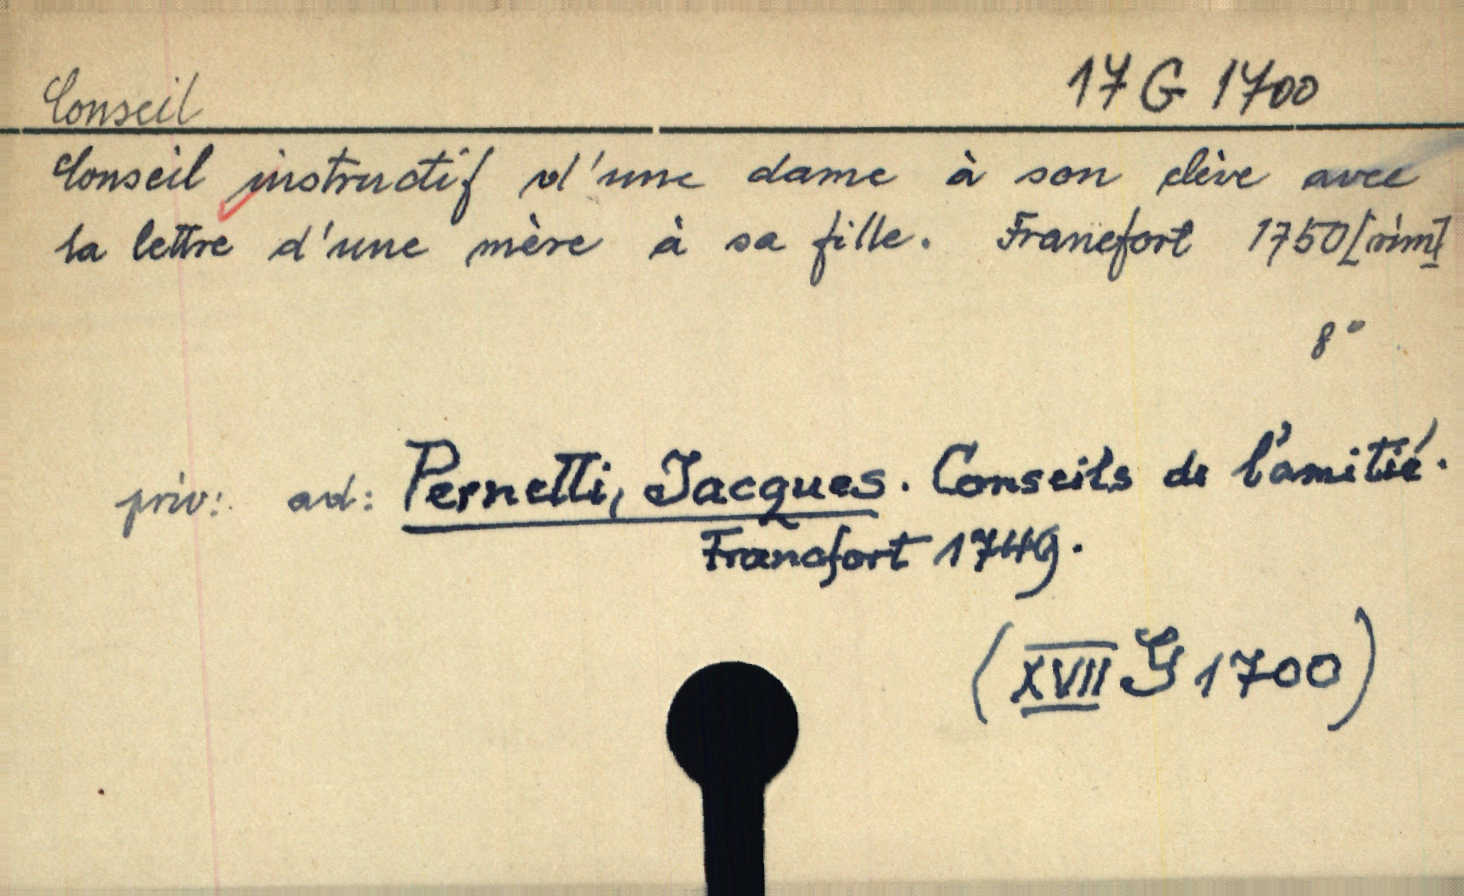 Conseil
17 G 1700
Conseil instructif d'une dame à son elève avec
la lettre d'une mère à sa fille. Francfort 1750
8°
priv: ad: Pernetti, Jacques. Conseils de l'amitié.
Francfort 1749.
(XVII G 1700)